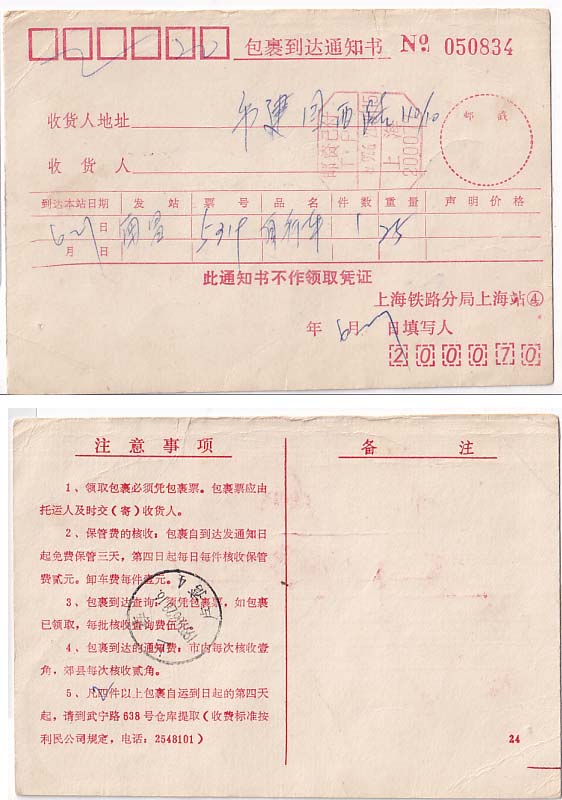 包裹到达通知书 № 050834
收货人地址 市建国西路
邮戳
上海
收货人
到达本站日期 发站 票号 品名 件数 重量 声明价格
日 自行车 1 25
月 日
此通知书不作领取凭证
上海铁路分局上海站④
年 6月 日填写人
200070
注意事项
1、领取包裹必须凭包裹票。包裹票应由
托运人及时交(寄)收货人。
2、保管费的核收:包裹自到达发通知日
起免费保管三天,第四日起每日每件核收保管
费贰元。卸车费每件壹元。
3、包裹到达查询,须凭包裹票,如包裹
已领取,每批核收查询费伍元。
4、包裹到达的通知费:市内每次核收壹
角,郊县每次核收贰角。
5、凡四件以上包裹自运到日起的第四天
起,请到武宁路638号仓库提取(收费标准按
利民公司规定,电话:2548101)
备注
24